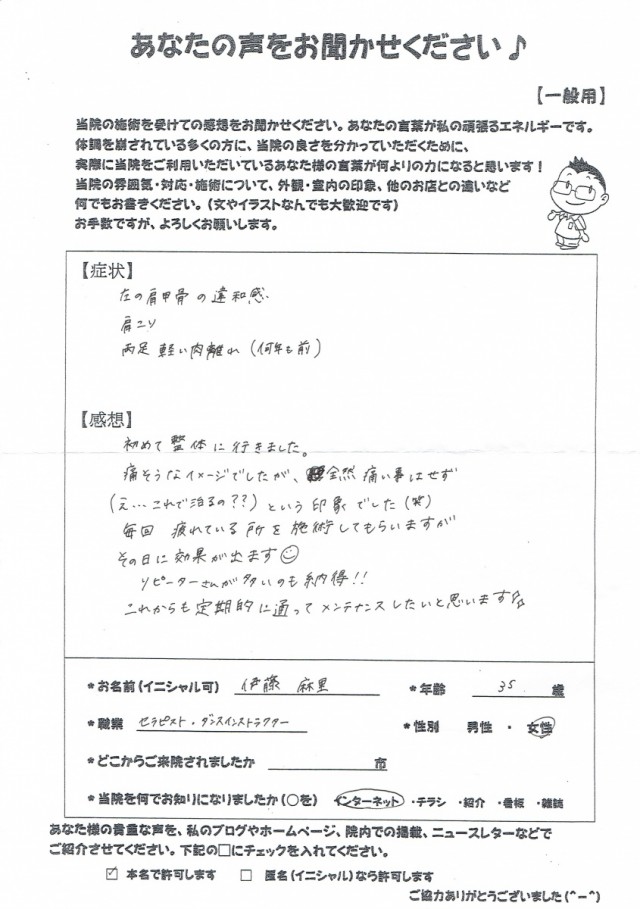 あなたの声をお聞かせください♪
【一般用】
当院の施術を受けての感想をお聞かせください。あなたの言葉が私の頑張るエネルギーです。
体調を崩されている多くの方に、当院の良さを分かっていただくために、
実際に当院をご利用いただいているあなた様の言葉が何よりの力になると思います！
当院の雰囲気・対応・施術について、外観・室内の印象、他のお店との違いなど
何でもお書きください。（文やイラストなんでも大歓迎です）
お手数ですが、よろしくお願いします。
【症状】
左の肩甲骨の違和感.
肩こり
両足 軽い肉離れ（何年も前）
【感想】
初めて整体に行きました。
痛そうなイメージでしたが、全然痛い事はせず
（え…これで治るの??）という印象でした（笑）
毎回 疲れている所を施術してもらいますが
その日に効果が出ます☺
リピーターさんが多いのも納得!!
これからも定期的に通ってメンテナンスしたいと思います♪
*お名前（イニシャル可） 伊藤 麻里 *年齢 35 歳
*職業 セラピスト・ダンスインストラクター *性別 男性 ・ 女性
*どこからご来院されましたか 市
*当院を何でお知りになりましたか（○を） インターネット ・チラシ ・紹介 ・看板 ・雑誌
あなた様の貴重な声を、私のブログやホームページ、院内での掲載、ニュースレターなどで
ご紹介させてください。下記の□にチェックを入れてください。
☑ 本名で許可します □ 匿名（イニシャル）なら許可します
ご協力ありがとうございました（^－^）